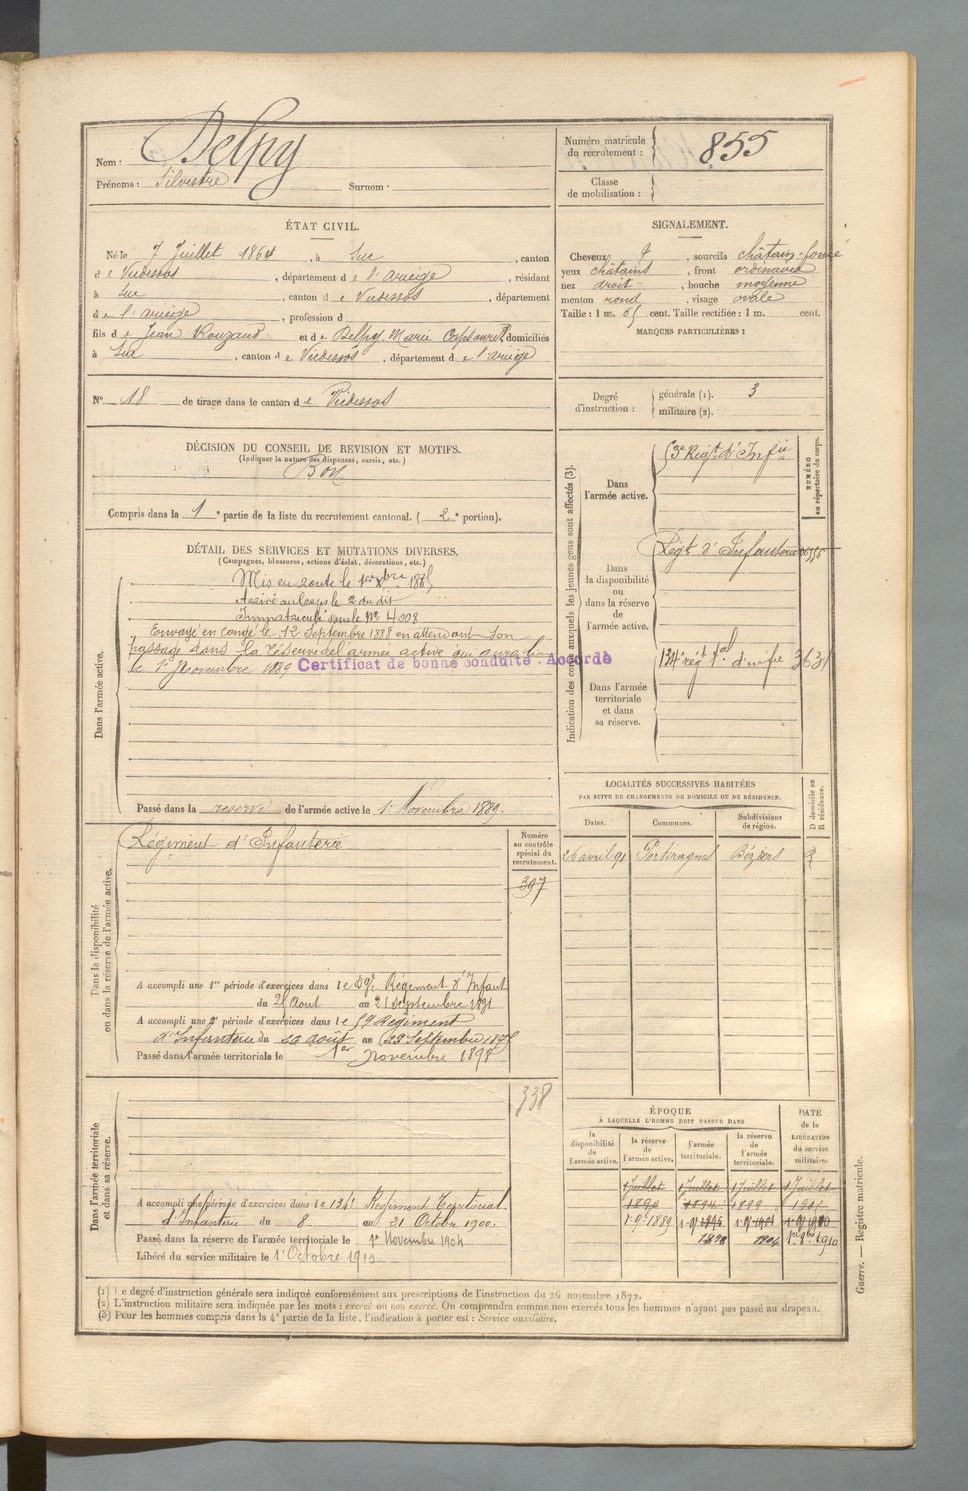 Nom : Delpy
Prénoms : Silvestre Surnom :
Numéro matricule du recrutement : 855
Classe de mobilisation :
ÉTAT CIVIL.
Né le 7 Juillet 1864, à Suc, canton
de Vicdessos, département de l'ariège, résidant
à Suc, canton de Vicdessos, département
de l'ariège, profession d
fils de Jean Rouzaud et de Delpy Marie domiciliés
à Suc, canton de Vicdessos, département de l'ariège
N° 18 de tirage dans le canton de Vicdessos
SIGNALEMENT.
Cheveux, sourcils châtain-foncé
yeux châtains, front ordinaire
nez droit, bouche moyenne
menton rond, visage ovale
Taille : 1 m. 65 cent. Taille rectifiée : 1 m. cent.
MARQUES PARTICULIÈRES :
Degré d'instruction : générale (1). 3
militaire (2).
DÉCISION DU CONSEIL DE REVISION ET MOTIFS.
(Indiquer la nature des dispenses, sursis, etc.)
Bon
Compris dans la 1e partie de la liste du recrutement cantonal. (2e portion).
DÉTAIL DES SERVICES ET MUTATIONS DIVERSES.
(Campagnes, blessures, actions d'éclat, décorations, etc.)
Dans l'armée active.
Mis en route le 1er Xbre 1885
Arrivé au Corps le 2 du dit
Immatriculé sous le No 4008
Envoyé en congé le 12 Septembre 1888 en attendant son
passage dans la réserve de l'armée active qui aura lieu
le 1er Novembre 1889 Certificat de bonne conduite : Accordé
Passé dans la reserve de l'armée active le 1er Novembre 1889.
Indication des corps auxquels les jeunes gens sont affectés (3).
NUMÉRO au répertoire du corps.
Dans l'armée active.
3e Régt d'Infie
Dans la disponibilité ou dans la réserve de l'armée active.
Régt d'Infanterie
Dans l'armée territoriale et dans sa réserve.
134e régt tal d'infie 3631
LOCALITÉS SUCCESSIVES HABITÉES
PAR SUITE DE CHANGEMENTS DE DOMICILE OU DE RÉSIDENCE.
Dates. Communes. Subdivisions de région. D domicile ou R résidence.
26 avril 91 Portiragnes Béziers R
Dans la disponibilité ou dans la réserve de l'armée active.
Régiment d'Infanterie
Numéro au contrôle spécial du recrutement.
397
A accompli une 1re période d'exercices dans le 59e Régiment d'Infant
du Aout au 21 septembre 1891
A accompli une 2e période d'exercices dans le 59 Régiment
d'Infanterie du août au Septembre
Passé dans l'armée territoriale le 1er Novembre 1898
Dans l'armée territoriale et dans sa réserve.
338
A accompli une période d'exercices dans le 134e Régiment Territorial
d'Infanterie du 8 au 21 Octobre 1900.
Passé dans la réserve de l'armée territoriale le 1er Novembre 1904
Libéré du service militaire le 1er Octobre 1910
ÉPOQUE
À LAQUELLE L'HOMME DOIT PASSER DANS
DATE de la LIBÉRATION du service militaire.
la disponibilité de l'armée active. la réserve de l'armée active. l'armée territoriale. la réserve de l'armée territoriale.
1 Juillet 1 Juillet 1 Juillet 1 Juillet
1890 1894 1899
1898 1904 1910
(1) Le degré d'instruction générale sera indiqué conformément aux prescriptions de l'instruction du 26 novembre 1872.
(2) L'instruction militaire sera indiquée par les mots : exercé ou non exercé. On comprendra comme non exercés tous les hommes n'ayant pas passé au drapeau.
(3) Pour les hommes compris dans la 4e partie de la liste, l'indication à porter est : Service auxiliaire.
Guerre. — Registre matricule.